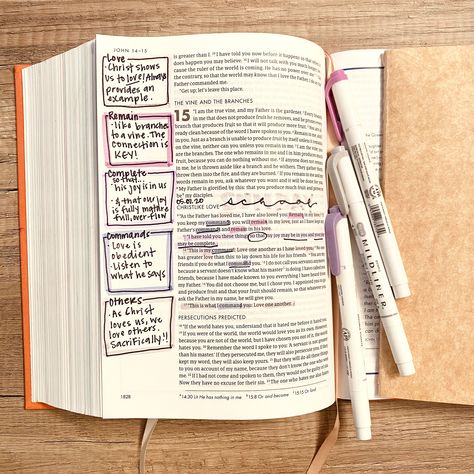 JOHN 14–15
Love
- Christ shows
us to love/Always
provides an
example.
Remain
- like branches
to a vine. The
connection is
KEY!
Complete
so that...
his joy is in us
& that our joy
is fully mature
full, overflow
Commands
- Love is
obedient
- Listen to
what he says
Others-
- As Christ
loves us, we
love others.
Sacrificially!!
1828
is greater than I. I have told you now before it happens so that when it
does happen you may believe. I will not talk with you much longer,
cause the ruler of the world is coming. He has no power over me.
the contrary, so that the world may know that I love the Father,
Father commanded me.
"Get up; let's leave this place.
THE VINE AND THE BRANCHES
15 "I am the true vine, and my Father is the gardener. Every branch
in me that does not produce fruit he removes, and he prunes every
branch that produces fruit so that it will produce more fruit. You are
ready clean because of the word I have spoken to you. Remain in me,
you. Just as a branch is unable to produce fruit by itself unless it remains
on the vine, neither can you unless you remain in me. I am the vine; you
are the branches. The one who remains in me and I in him produces
fruit, because you can do nothing without me. If anyone does not remain
in me, he is thrown aside like a branch and he withers. They gather
throw them into the fire, and they are burned. If you remain in me
words remain in you, ask whatever you want and it will be done for you.
My Father is glorified by this: that you produce much fruit and prove
be my disciples.
05.01.20
school
CHRISTLIKE LOVE
"As the Father has loved me, I have also loved you. Remain in my love.
you keep my commands you will remain in my love, just as I have kept my
Father's commands and remain in his love.
"I have told you these things so that my joy may be in you and your joy
may be complete.
"This is my command: Love one another as I have loved you. No one has
greater love than this: to lay down his life for his friends. You are my
friends if you do what I command you. I do not call you servants anymore,
because a servant doesn't know what his master is doing. I have called you
friends, because I have made known to you everything I have heard from my
Father. You did not choose me, but I chose you. I appointed you to go
and produce fruit and that your fruit should remain, so that whatever you
ask the Father in my name, he will give you.
"This is what I command you: Love one another.
PERSECUTIONS PREDICTED
"If the world hates you, understand that it hated me before it hated you.
If you were of the world, the world would love you as its own. However,
because you are not of the world, but I have chosen you out of it, the world
hates you. Remember the word I spoke to you: 'A servant is not greater
than his master.' If they persecuted me, they will also persecute you. If they
kept my word, they will also keep yours. But they will do all these things
to you on account of my name, because they don't know the one who sent
me. If I had not come and spoken to them, they would not be guilty of sin.
Now they have no excuse for their sin. The one who hates me also hates
14:30 Lit He has nothing in me
15:8 Or and become
MILDLINER